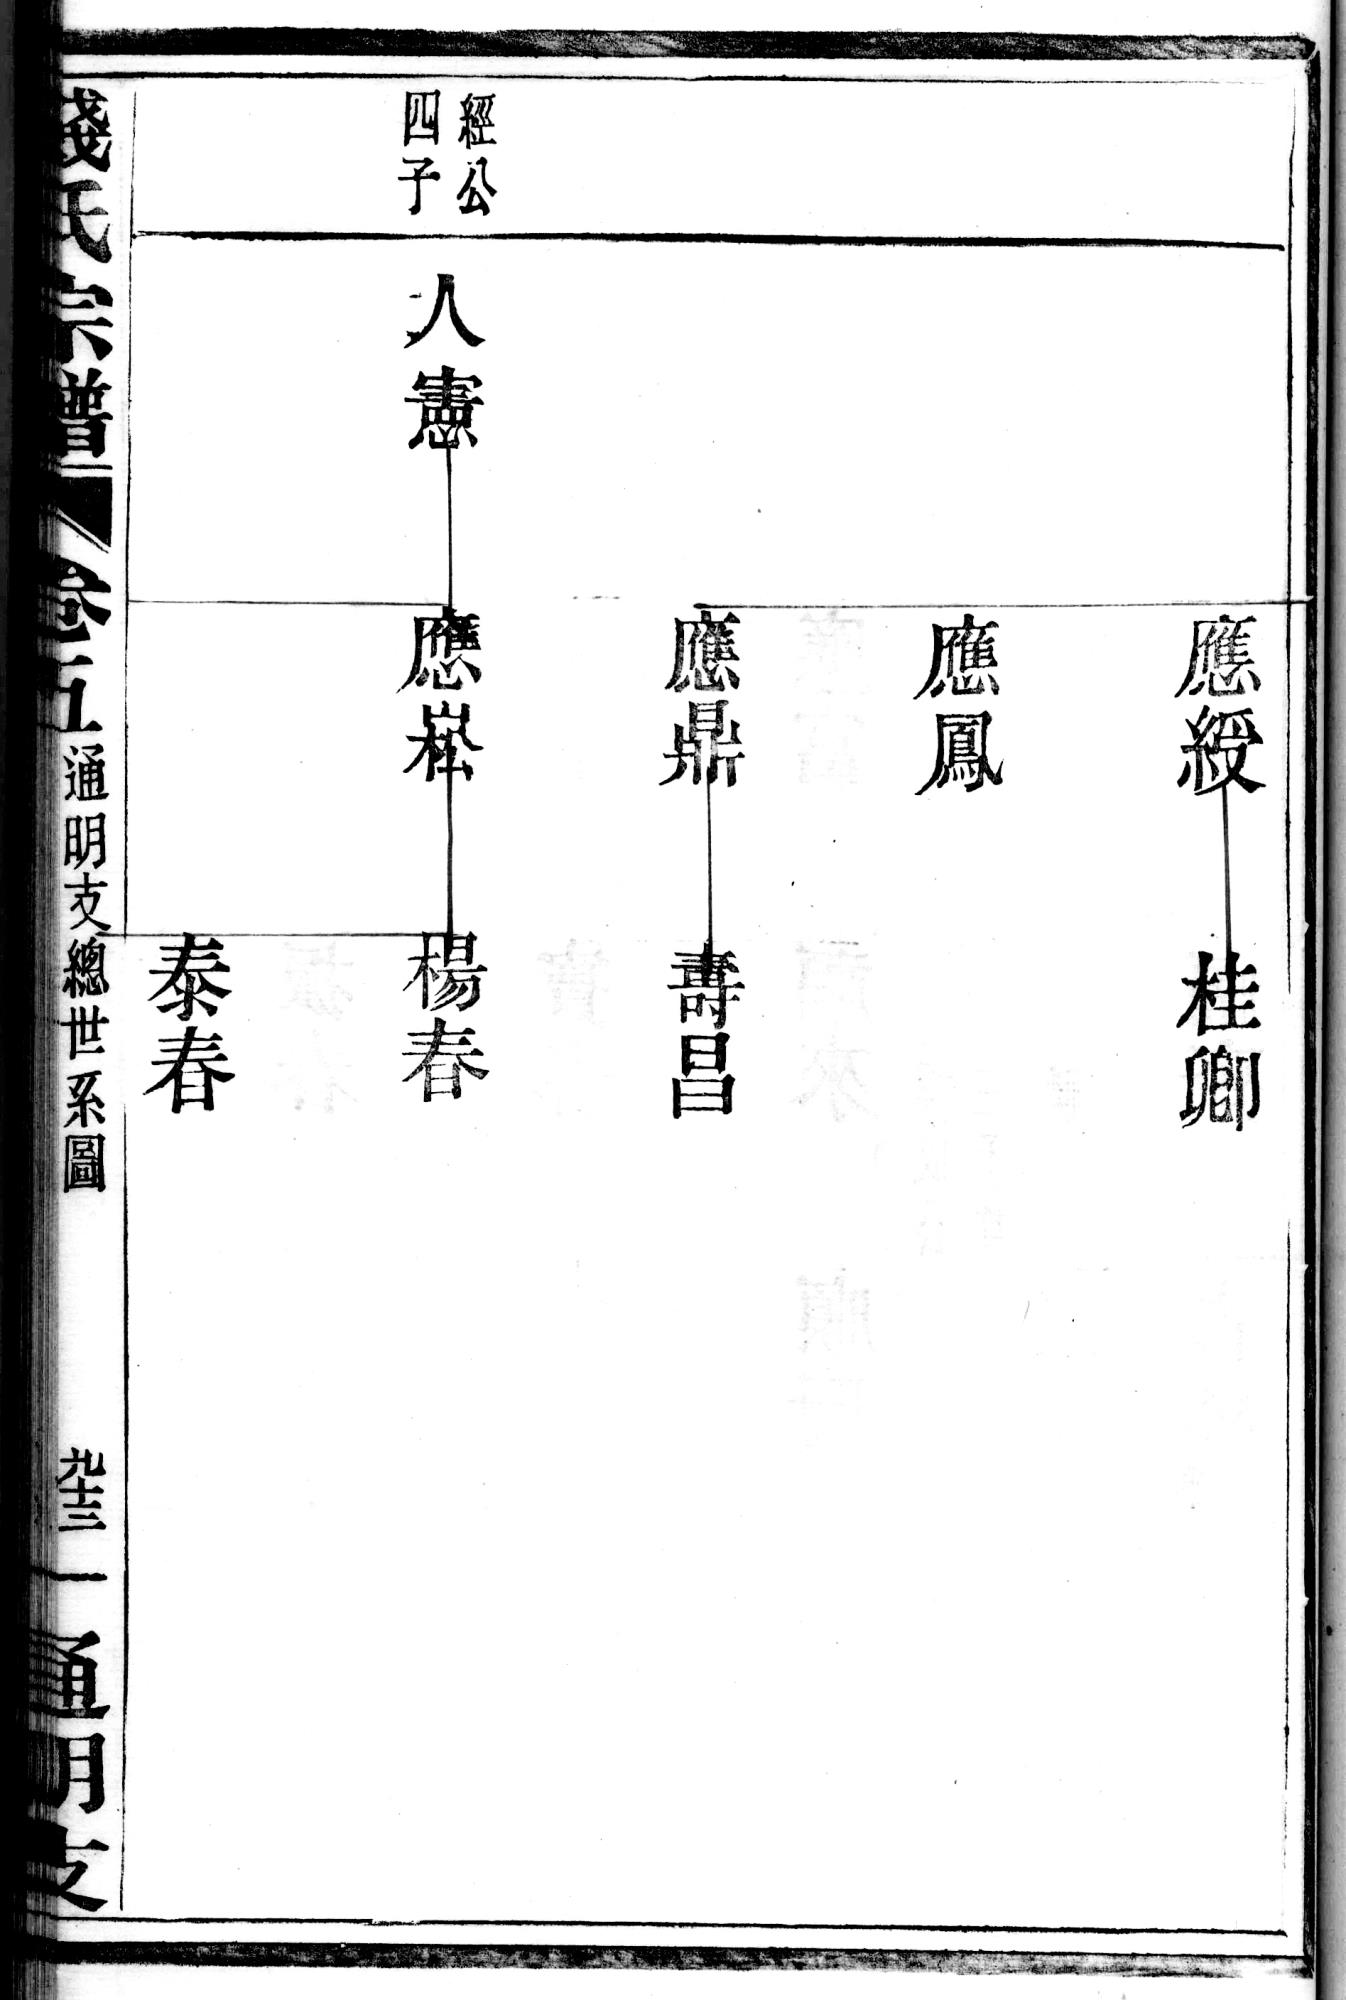 應綬
桂卿
應鳳
應鼎
壽昌
經公
四子
人憲
應崧
楊春
泰春
錢氏宗譜
卷五
通明支總世系圖
九十三
通明支